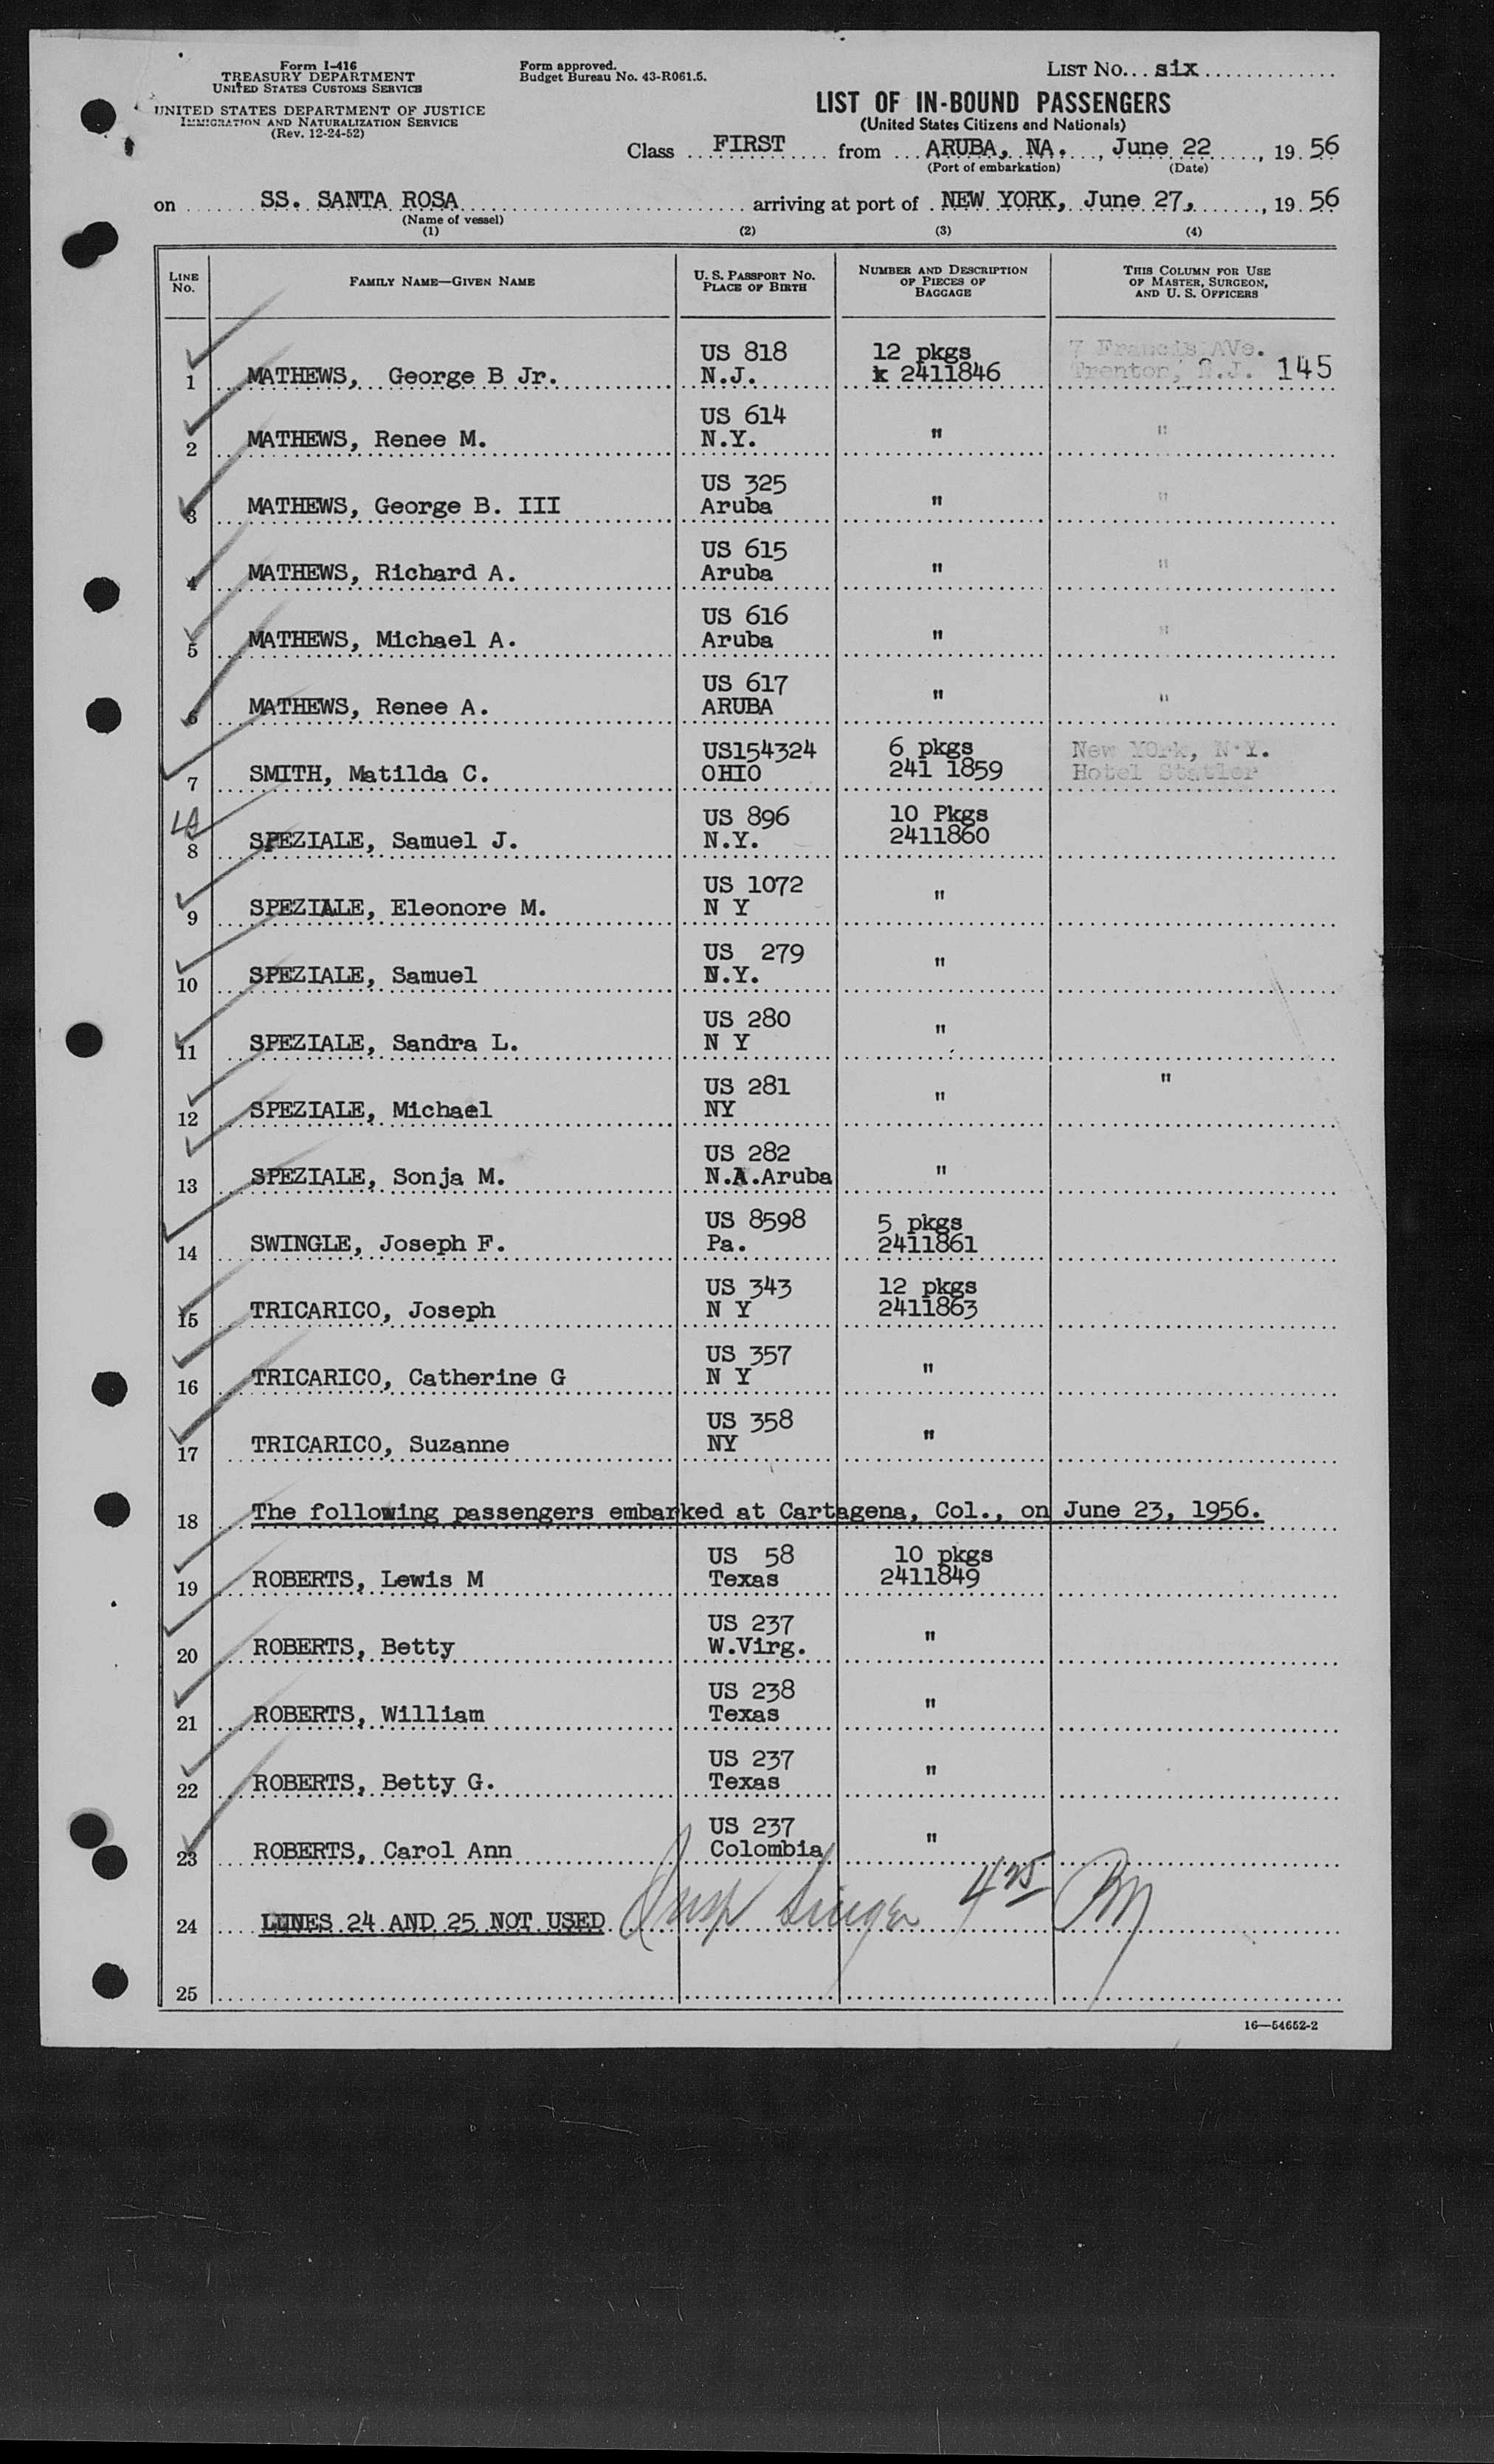 Form I-416
TREASURY DEPARTMENT
UNITED STATES CUSTOMS SERVICE
UNITED STATES DEPARTMENT OF JUSTICE
IMMIGRATION AND NATURALIZATION SERVICE
(Rev. 12-24-52)
Form approved.
Budget Bureau No. 43-R061.5.
LIST No. six
LIST OF IN-BOUND PASSENGERS
(United States Citizens and Nationals)
Class FIRST from ARUBA, NA., June 22, 19 56
(Port of embarkation) (Date)
on SS. SANTA ROSA arriving at port of NEW YORK, June 27, 19 56
(Name of vessel)
(1) (2) (3) (4)
LINE No. FAMILY NAME—GIVEN NAME U. S. PASSPORT NO. PLACE OF BIRTH NUMBER AND DESCRIPTION OF PIECES OF BAGGAGE THIS COLUMN FOR USE OF MASTER, SURGEON, AND U. S. OFFICERS
US 818 12 pkgs 7 Francis AVe.
1 MATHEWS, George B Jr. N.J. k 2411846 Trenton, N.J. 145
US 614
2 MATHEWS, Renee M. N.Y. " "
US 325
3 MATHEWS, George B. III Aruba " "
US 615
4 MATHEWS, Richard A. Aruba " "
US 616
5 MATHEWS, Michael A. Aruba " "
US 617
6 MATHEWS, Renee A. ARUBA " "
US154324 6 pkgs New YOrk, N.Y.
7 SMITH, Matilda C. OHIO 241 1859 Hotel Statler
US 896 10 Pkgs
8 SPEZIALE, Samuel J. N.Y. 2411860
US 1072
9 SPEZIALE, Eleonore M. N Y "
US 279
10 SPEZIALE, Samuel N.Y. "
US 280
11 SPEZIALE, Sandra L. N Y "
US 281 "
12 SPEZIALE, Michael NY "
US 282
13 SPEZIALE, Sonja M. N.A.Aruba "
US 8598 5 pkgs
14 SWINGLE, Joseph F. Pa. 2411861
US 343 12 pkgs
15 TRICARICO, Joseph N Y 2411863
US 357
16 TRICARICO, Catherine G N Y "
US 358
17 TRICARICO, Suzanne NY "
18 The following passengers embarked at Cartagena, Col., on June 23, 1956.
US 58 10 pkgs
19 ROBERTS, Lewis M Texas 2411849
US 237
20 ROBERTS, Betty W.Virg. "
US 238
21 ROBERTS, William Texas "
US 237
22 ROBERTS, Betty G. Texas "
US 237
23 ROBERTS, Carol Ann Colombia "
24 LINES 24 AND 25 NOT USED
25
16—54652-2